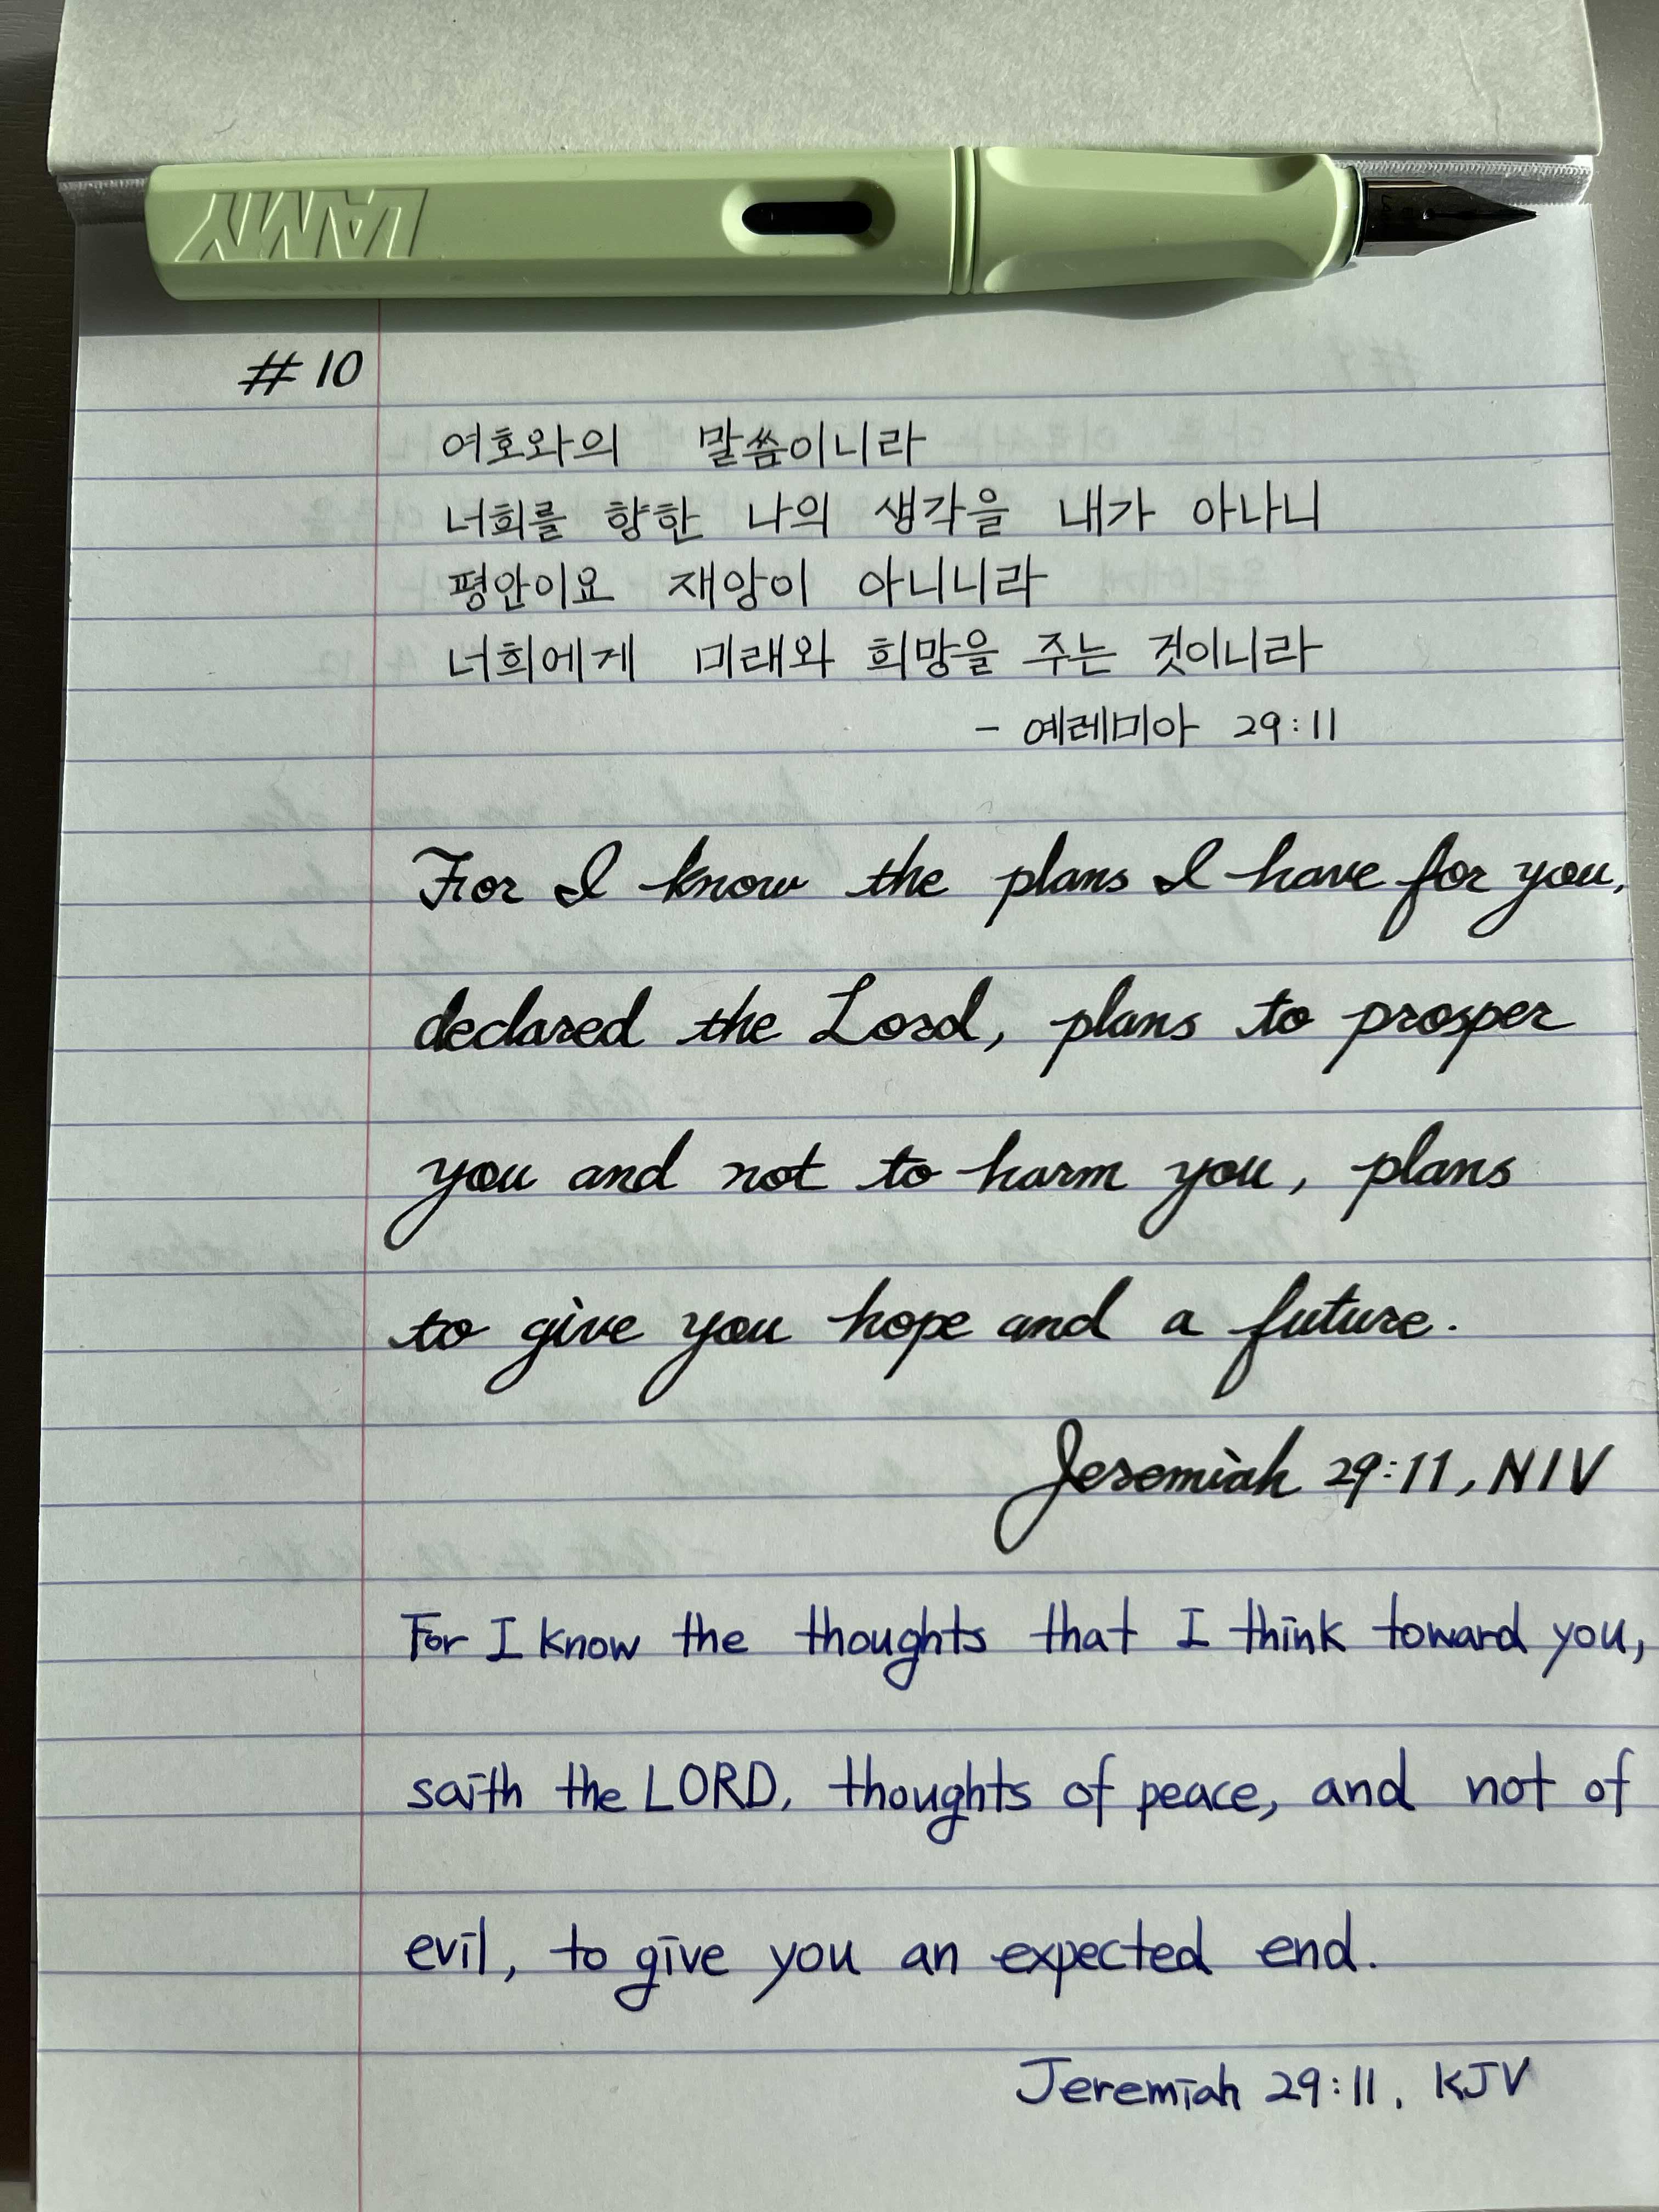 LAMY
#10
여호와의 말씀이니라
너희를 향한 나의 생각을 내가 아나니
평안이요 재앙이 아니니라
너희에게 미래와 희망을 주는 것이니라
- 예레미아 29:11
For I know the plans I have for you,
declared the Lord, plans to prosper
you and not to harm you, plans
to give you hope and a future.
Jeremiah 29:11, NIV
For I know the thoughts that I think toward you,
saith the LORD, thoughts of peace, and not of
evil, to give you an expected end.
Jeremiah 29:11, KJV